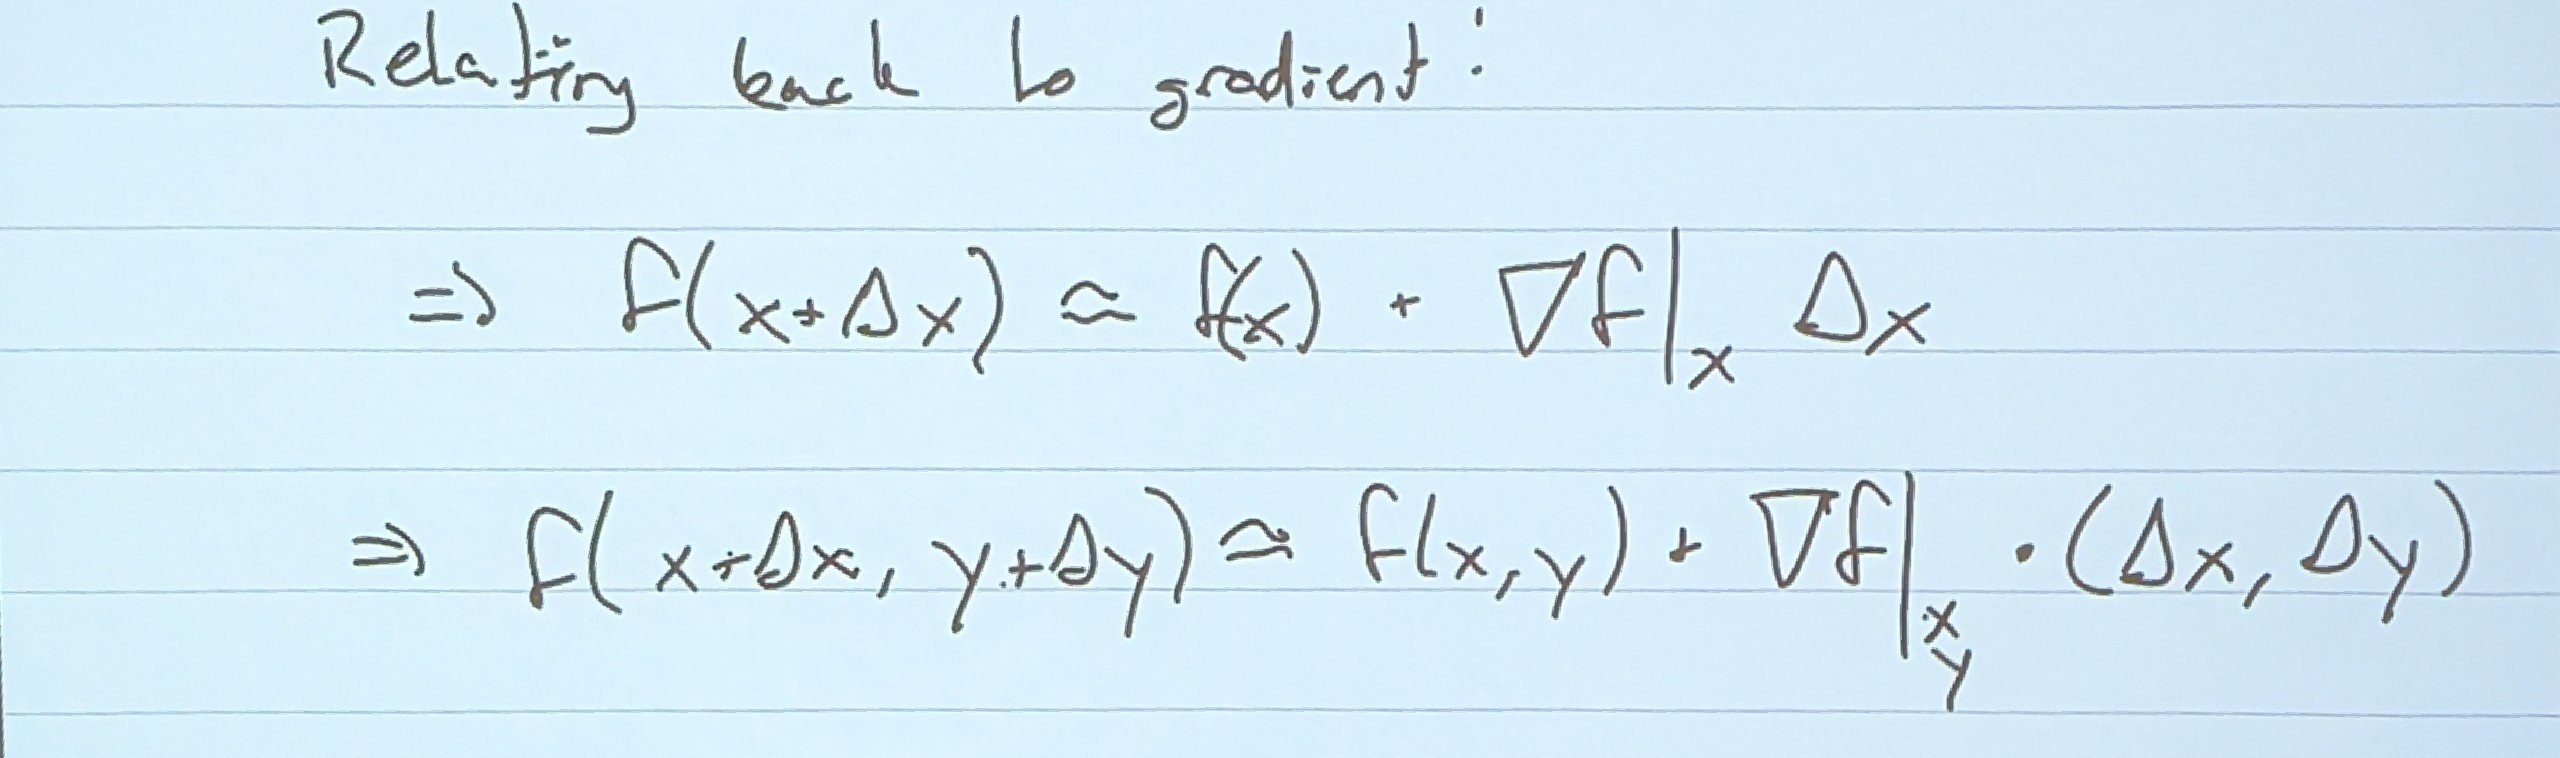 Relating back to gradient:
⇒ f(x+Δx) ≃ f(x) + ∇f|ₓ Δx
⇒ f(x+Δx, y+Δy) ≃ f(x,y) + ∇f|_{x y} · (Δx, Δy)